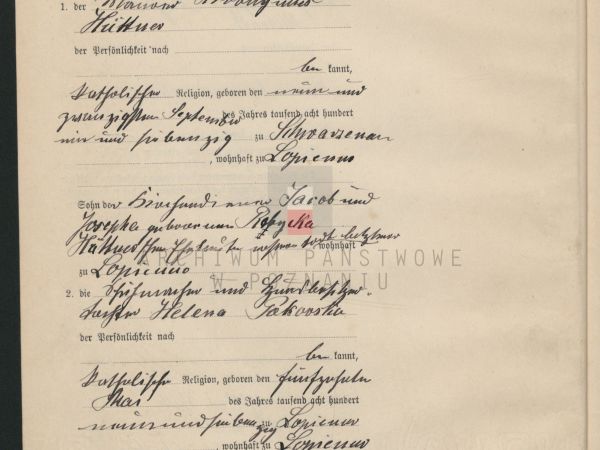 1. der Maurer
Hüttner
der Persönlichkeit nach
be kannt,
katholischer Religion, geboren den neun und
zwanzigsten September des Jahres tausend acht hundert
und siebenzig zu Schwarzenau
, wohnhaft zu Lopienno
Sohn der Kirchendiener Jacob und
Josepha geborenen
Hüttner'schen Eheleute wohnhaft
zu Lopienno
ARCHIWUM PAŃSTWOWE
W POZNANIU
2. die Schuhmacher und Grundbesitzer
tochter Helena
der Persönlichkeit nach
be kannt,
katholische Religion, geboren den fünfzehnten
Mai des Jahres tausend acht hundert
neun und sieben zig zu Lopienno
, wohnhaft zu Lopienno